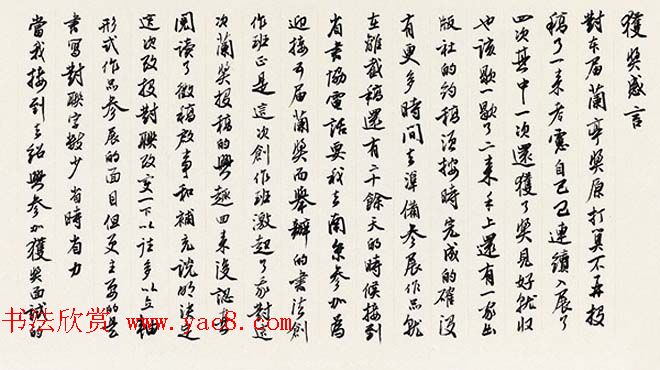 獲奬感言
對本届蘭亭奬原打算不再投
稿了一来考慮自己已連續入展了
四次其中一次還獲了奬見好就收
也該歇一歇了二来手上還有一家出
版社的約稿須按時完成的確没
有更多時間去準備参展作品就
在離截稿還有二十餘天的時候接到
省書協電話要我去南京参加為
迎接五届蘭奬而舉辦的書法創
作班正是這次創作班激起了我對這
次蘭奬投稿的興趣回来後認真
閲讀了徵稿啟事和補充説明决定
這次改投對聯改变一下以往多以立軸
形式作品参展的面目但更主要的是
書寫對聯字数少省時省力
當我接到去紹興参加獲奬面試的
书法欣赏 www.yac8.com